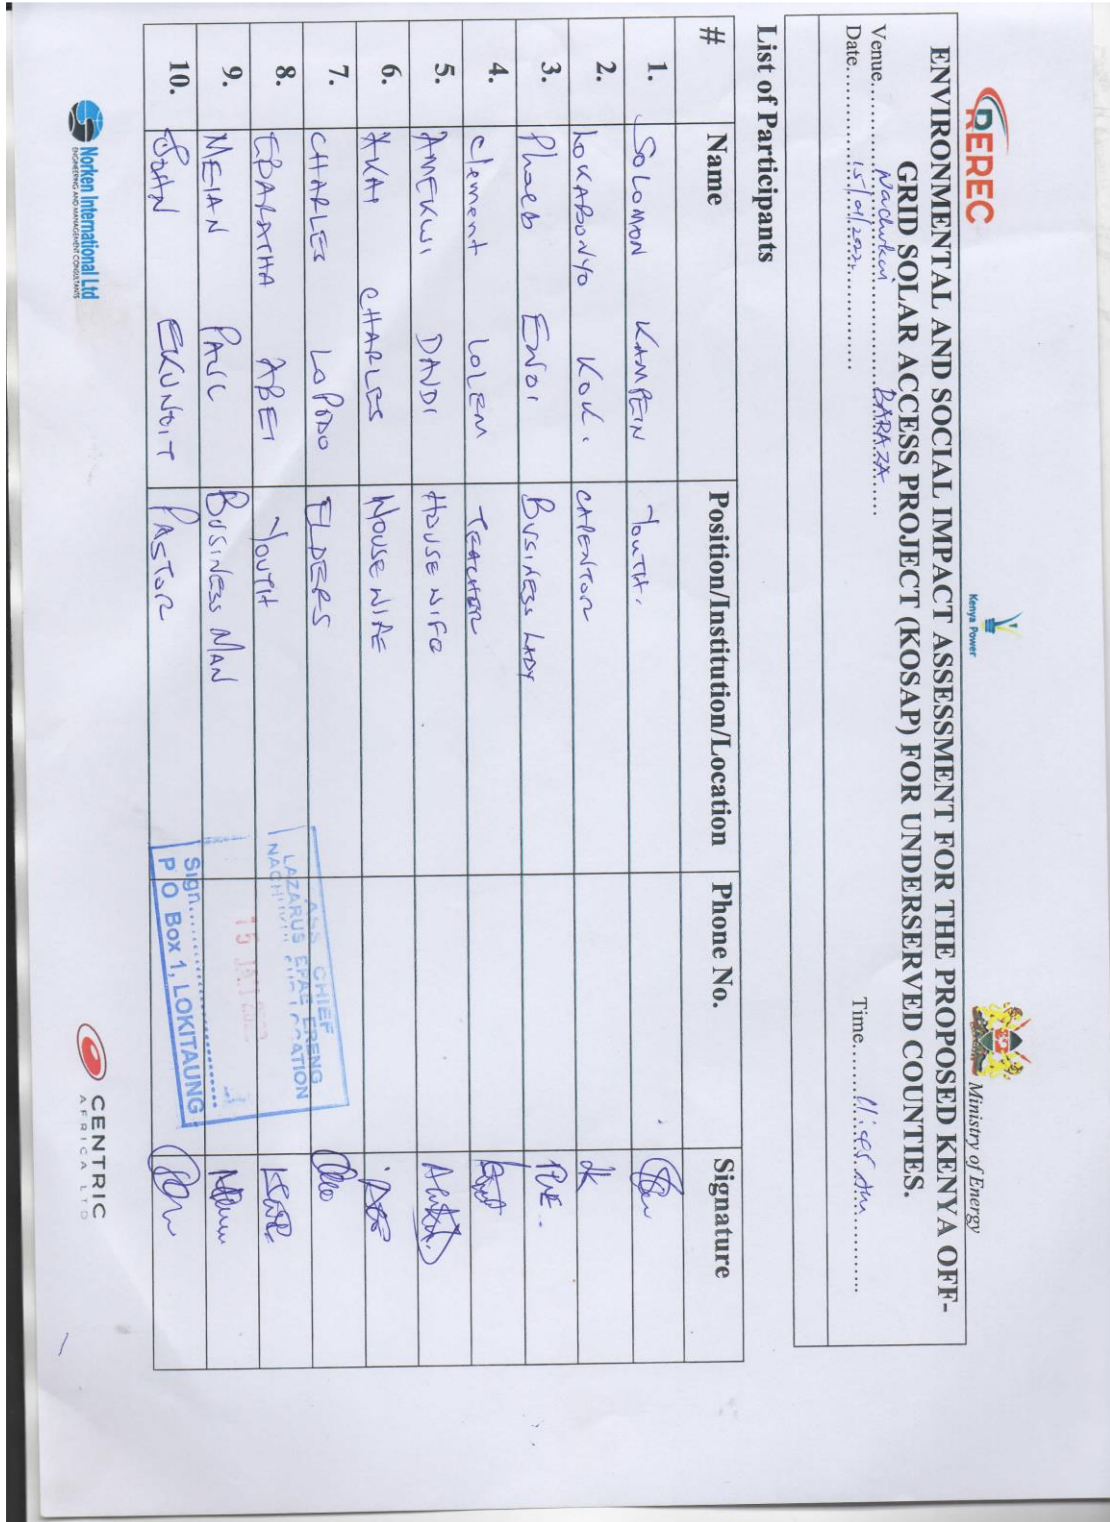 REREC
Kenya Power
Ministry of Energy
ENVIRONMENTAL AND SOCIAL IMPACT ASSESSMENT FOR THE PROPOSED KENYA OFF-
GRID SOLAR ACCESS PROJECT (KOSAP) FOR UNDERSERVED COUNTIES.
Venue.....Nachukui.....BARAZA.....
Date.....15/01/2022..... Time.....
List of Participants
# Name Position/Institution/Location Phone No. Signature
1. SOLOMON KAMPEIN YOUTH.
2. LOKABONYO KOK. CAPENTOR
3. Phoebo EWOI BUSINESS LADY
4. Clement LOLEM TEACHER
5. AMEKWI DANDI HOUSE WIFE
6. AKAI CHARLES HOUSE WIFE
7. CHARLES LOPIDO ELDERS
8. EBALATHA ABEI YOUTH
9. MEIAN PAUL BUSINESS MAN
10. JOHN EKUNOIT PASTOR
ASS CHIEF
LAZARUS EPAE ERENG
15 JAN
Sign..............................
P O Box 1, LOKITAUNG
Norken International Ltd
ENGINEERING AND MANAGEMENT CONSULTANTS
CENTRIC
AFRICA LTD